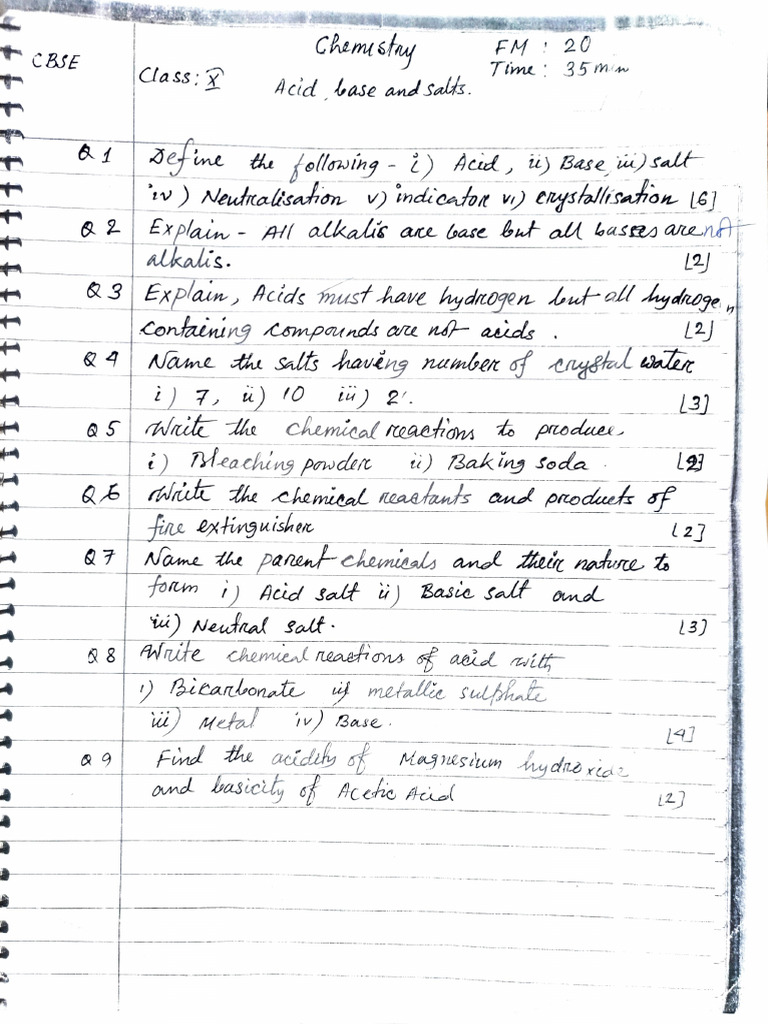 Chemistry FM : 20
CBSE Time : 35 min
Class : X
Acid, base and salts.
Q 1 Define the following - i) Acid, ii) Base, iii) salt
iv) Neutralisation v) indicator vi) crystallisation [6]
Q 2 Explain - All alkalis are base but all basses are not
alkalis. [2]
Q 3 Explain, Acids must have hydrogen but all hydrogen
containing compounds are not acids. [2]
Q 4 Name the salts having number of crystal water
i) 7, ii) 10 iii) 2. [3]
Q 5 Write the chemical reactions to produce
i) Bleaching powder ii) Baking soda. [2]
Q 6 Write the chemical reactants and products of
fire extinguisher [2]
Q 7 Name the parent chemicals and their nature to
form i) Acid salt ii) Basic salt and
iii) Neutral salt. [3]
Q 8 Write chemical reactions of acid with
i) Bicarbonate ii) metallic sulphate
iii) Metal iv) Base. [4]
Q 9 Find the acidity of Magnesium hydroxide
and basicity of Acetic Acid [2]